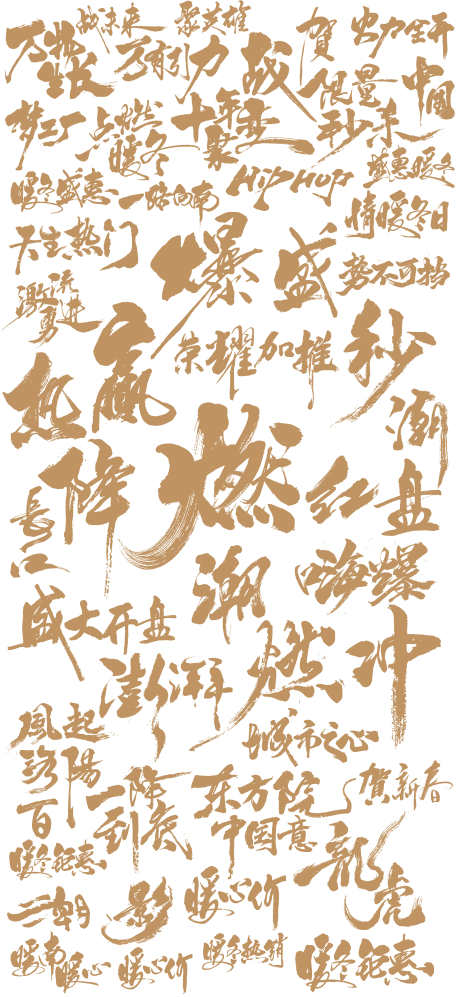 战未来
聚英雄
賀
火力全开
万物
生长
万有引力
战
限量
中國
梦工厂
点燃
暖冬
十年
聚变
秒杀
盛惠暖冬
暖冬盛惠
一路向南
HIPHOP
情暖冬日
天生热门
爆
盛
势不可挡
激流
勇进
赢
荣耀加推
秒
热
潮
降
燃
红
盘
長
口
潮
嗨爆
盛大开盘
澎湃
燃
冲
風起
洛陽
城市之心
百
一降
到底
东方院
中国意
贺新春
暖冬钜惠
龍
虎
二朝
影
暖心价
暖南
暖心
暖心价
暖冬热销
暖冬钜惠